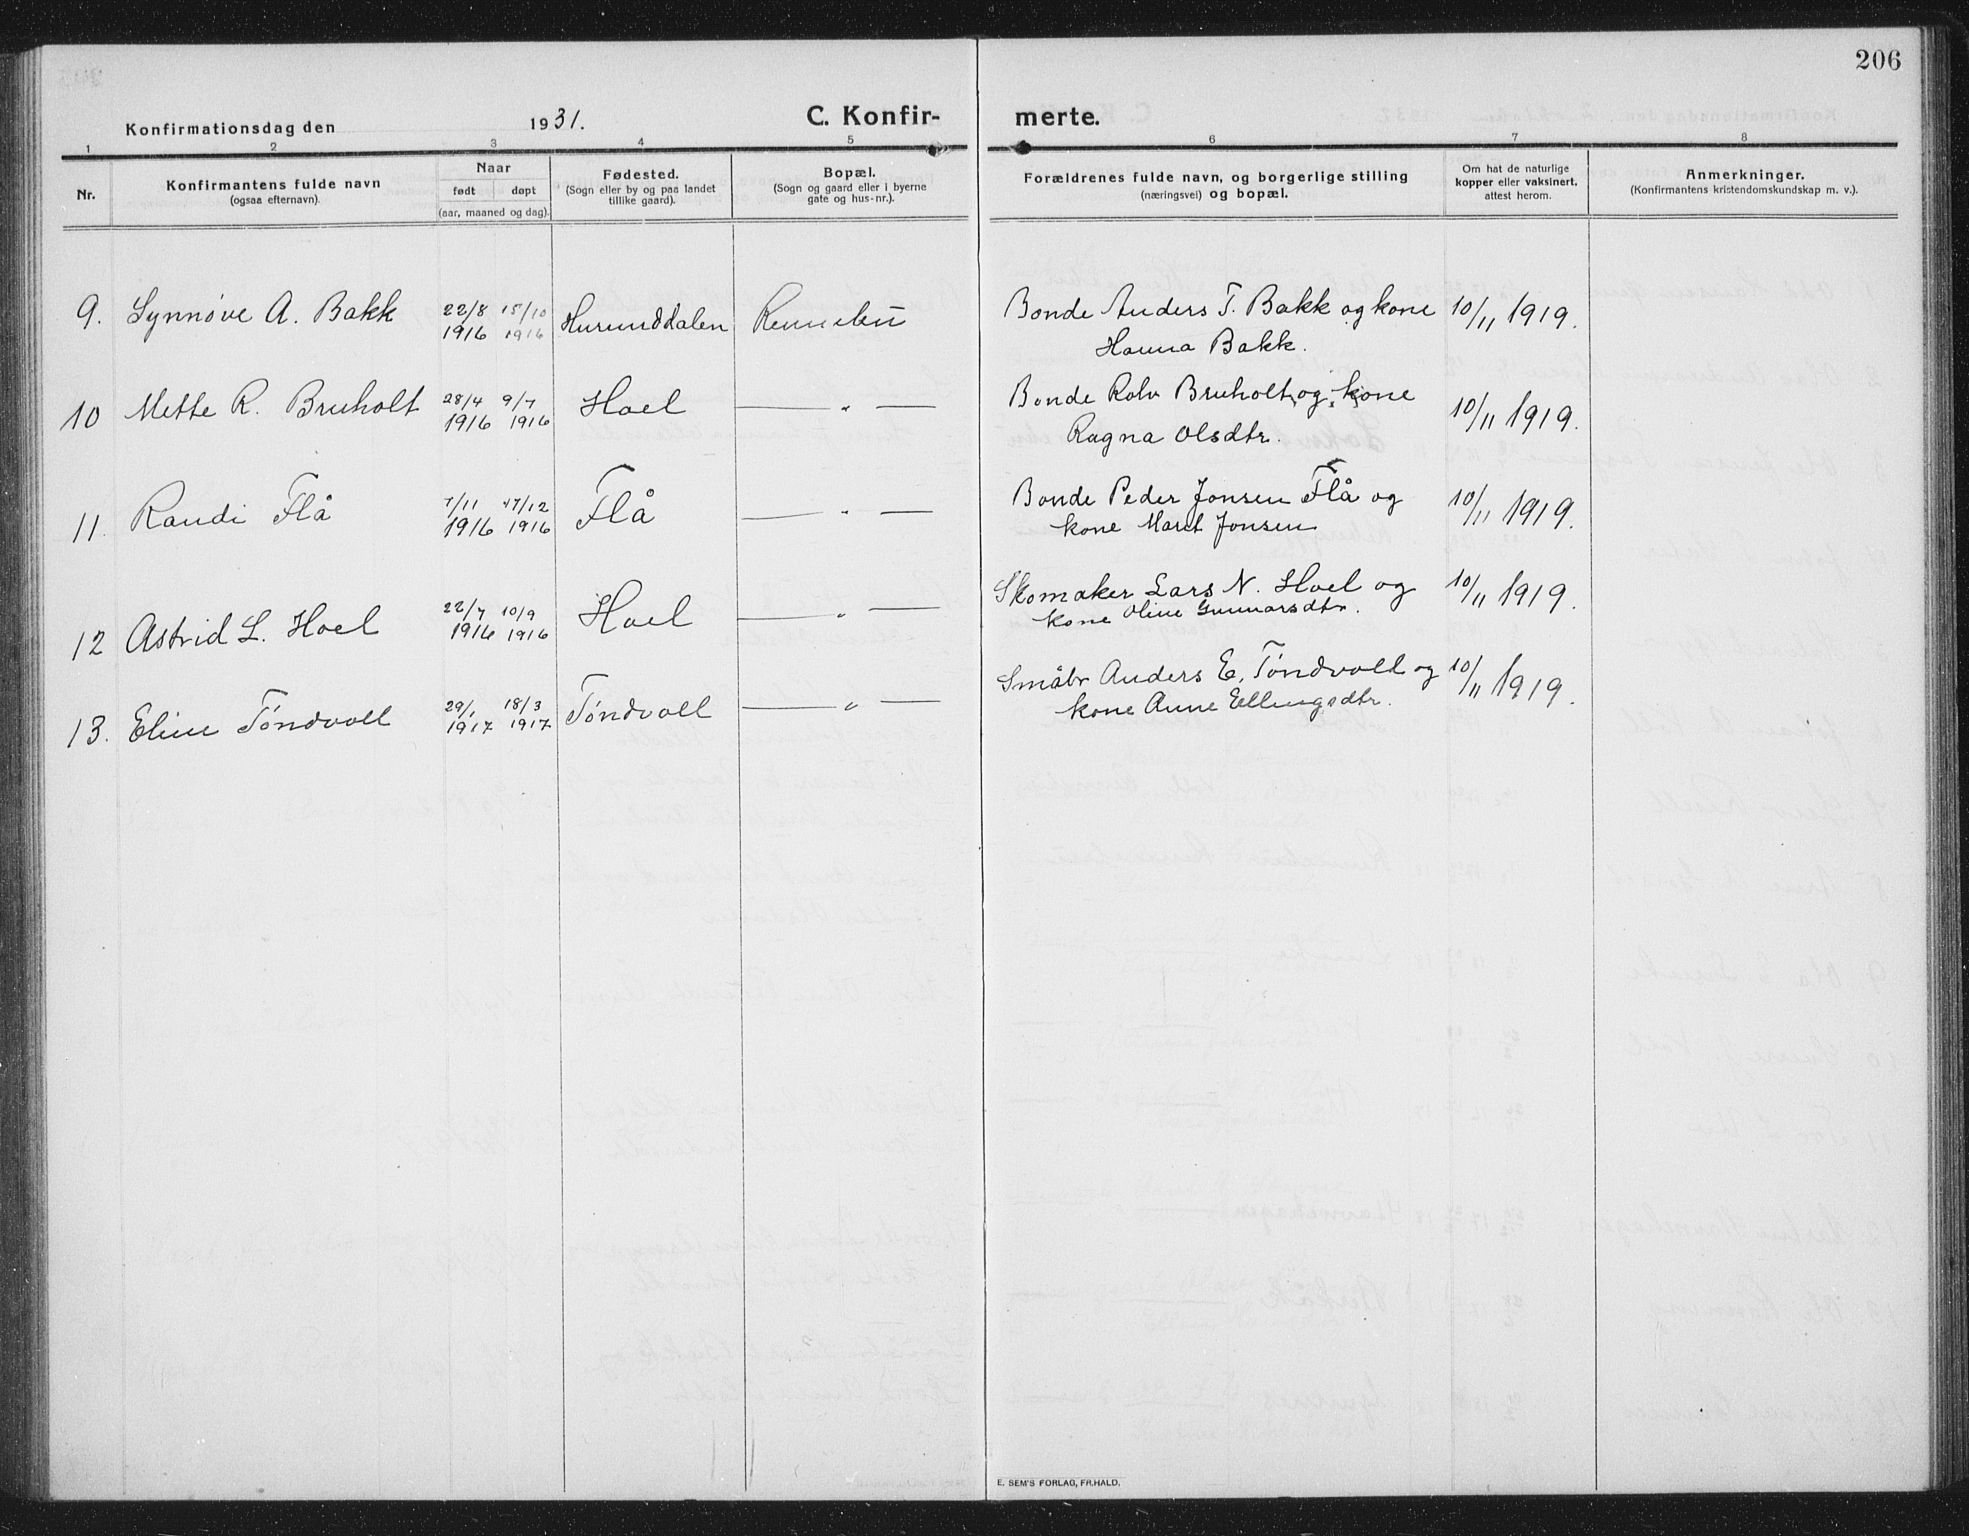 206
Konfirmationsdag den 1931. C. Konfir- merte.
1 2 3 4 5 6 7 8
Nr.
Konfirmantens fulde navn
(ogsaa efternavn).
Naar
født døpt
(aar, maaned og dag).
Fødested.
(Sogn eller by og paa landet
tillike gaard).
Bopæl.
(Sogn og gaard eller i byerne
gate og hus-nr.).
Forældrenes fulde navn, og borgerlige stilling
(næringsvei) og bopæl.
Om hat de naturlige
kopper eller vaksinert,
attest herom.
Anmerkninger.
(Konfirmantens kristendomskundskap m. v.).
9. Synnøve A. Bakk 22/8 15/10 Hurunddalen Rennebu Bonde Anders T. Bakk og kone 10/11 1919.
1916 1916 Hanna Bakk.
10 Mette R. Bruholt 28/4 9/7 Hoel — " — Bonde Rolv Bruholt og kone 10/11 1919.
1916 1916 Ragna Olsdtr.
11. Randi Flå 7/11 17/12 Flå — " — Bonde Peder Jonsen Flå og 10/11 1919.
1916 1916 kone Marit Jonsen
12 Astrid L. Hoel 22/7 10/9 Hoel — " — Skomaker Lars N. Hoel og 10/11 1919.
1916 1916 kone Oline Gunnarsdtr.
13. Eline Tøndvoll 29/1 18/3 Tøndvoll — " — Småbr Anders E. Tøndvoll og 10/11 1919.
1917 1917 kone Anne Ellingsdtr.
E. SEM'S FORLAG, FR.HALD.